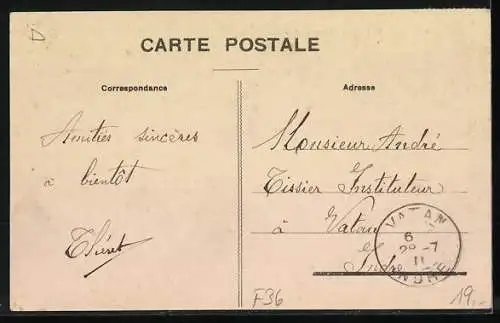 D
CARTE POSTALE
Correspondance
Adresse
Amitiés sincères
à bientôt
Monsieur André
Tissier Instituteur
à Vatan
Indre
VATAN
6
28 -7
11
INDRE
F36
19,-